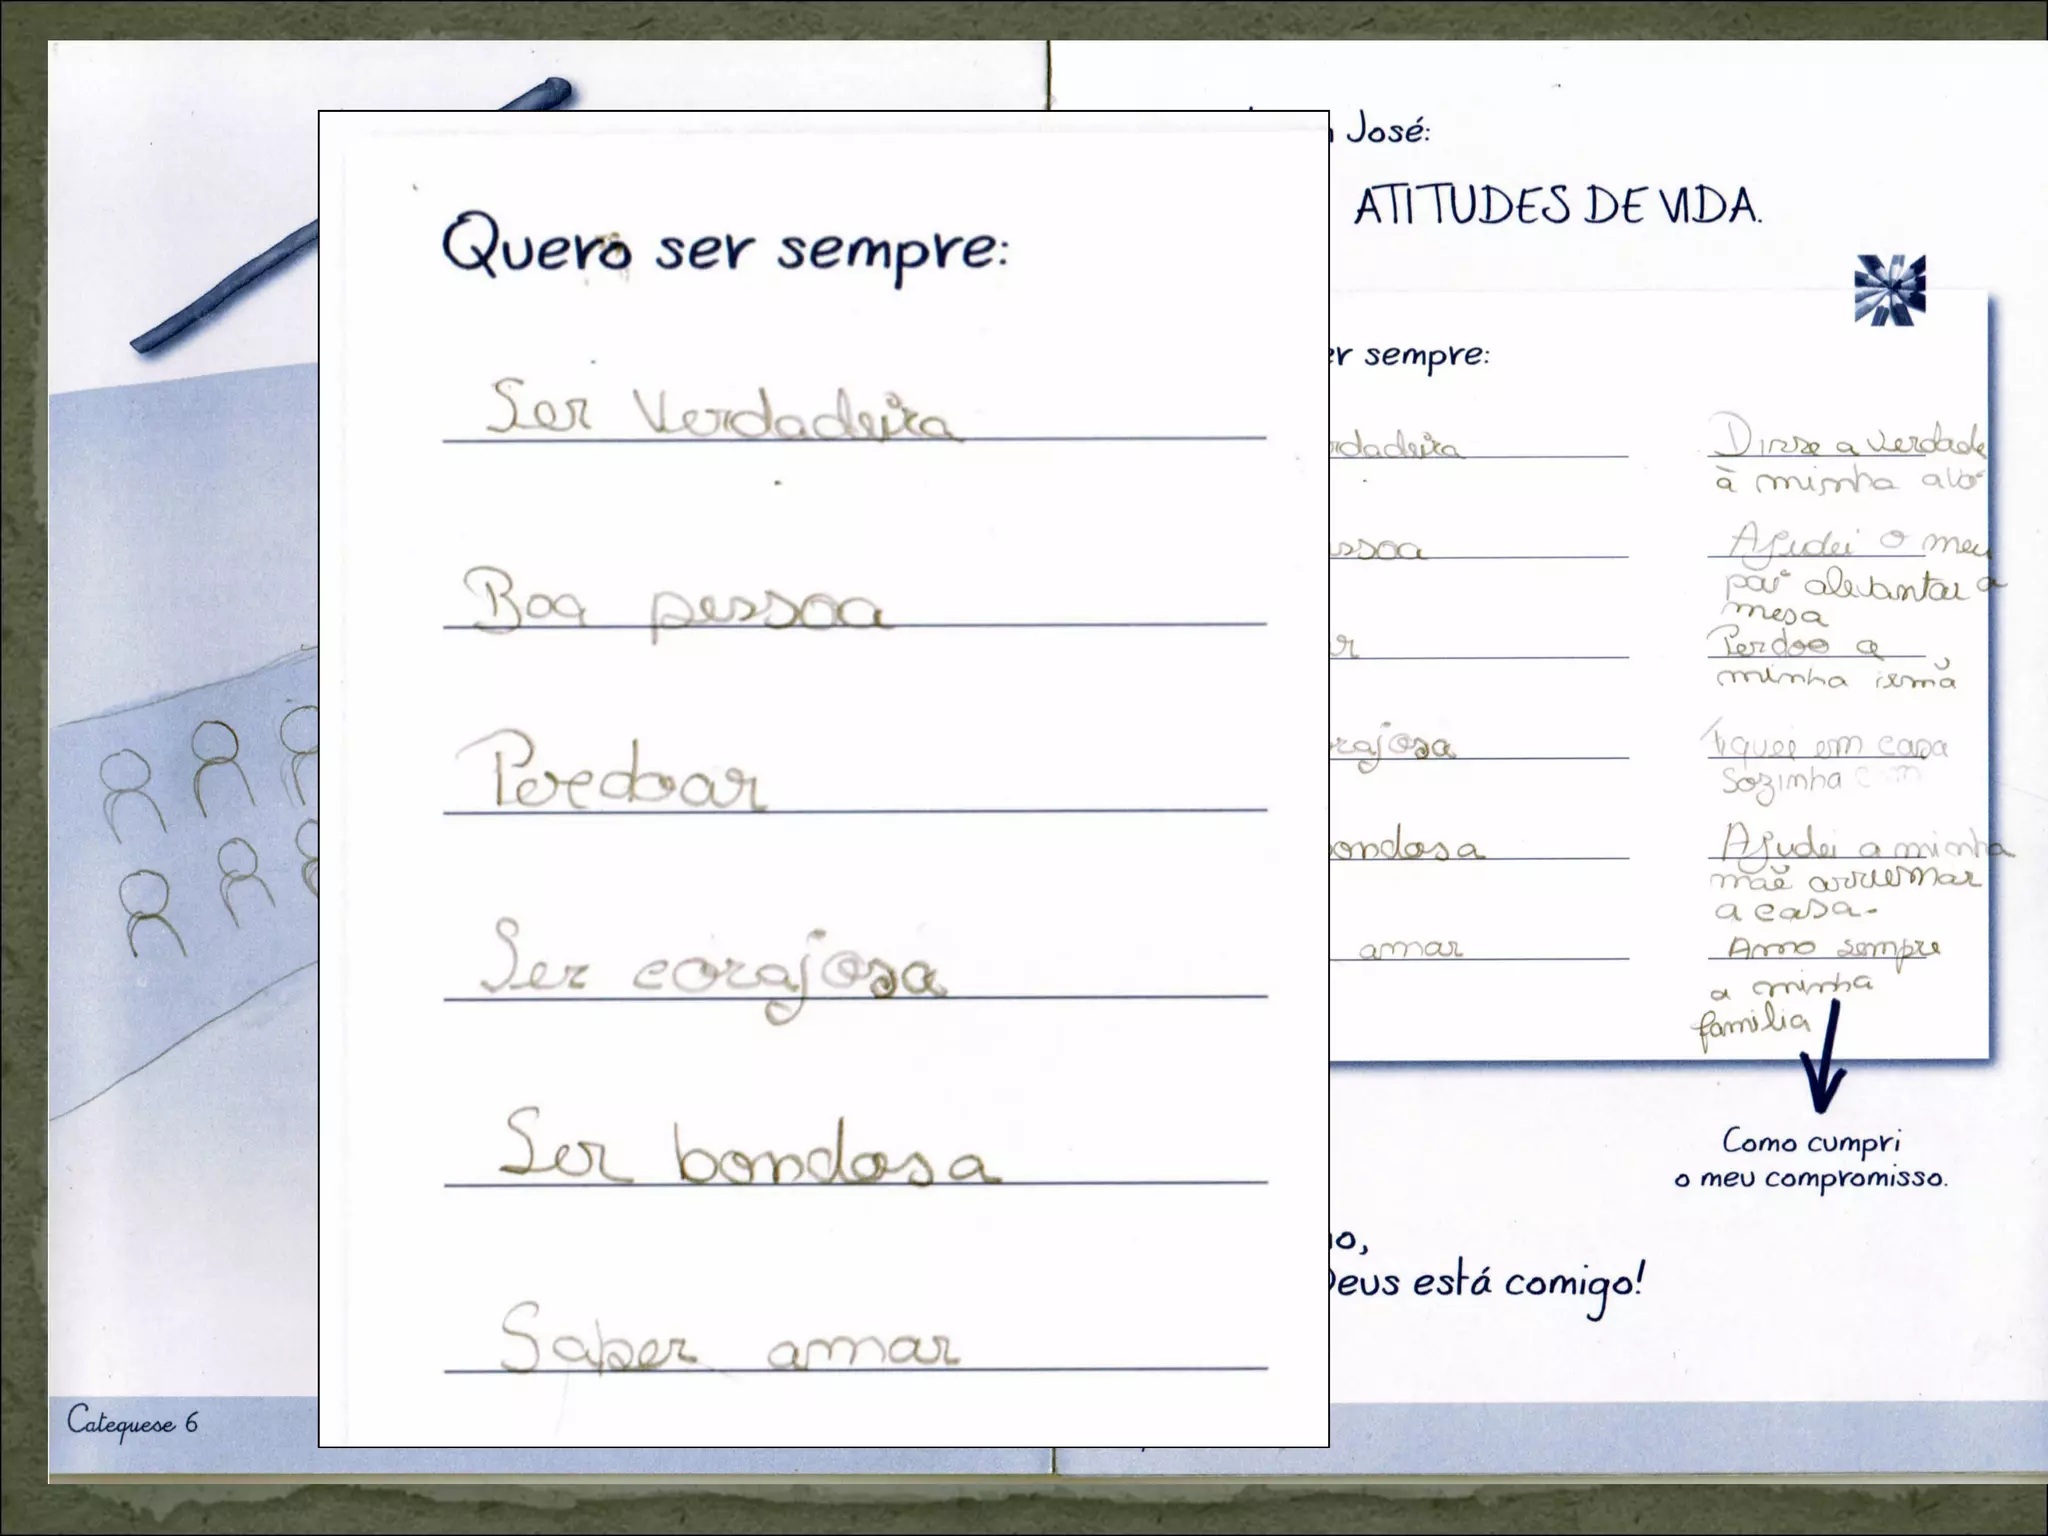 José:
ATITUDES DE VIDA.
Quero ser sempre:
Ser Verdadeira
Boa pessoa
Perdoar
Ser corajosa
Ser bondosa
Saber amar
er sempre:
rdadeira
ssoa
r
rajosa
ondosa
amar
Disse a verdade
à minha avó
Ajudei o meu
pai alevantar a
mesa
Perdoo a
minha irmã
Fiquei em casa
sozinha
Ajudei a minha
mãe arrumar
a casa.
Amo sempre
a minha
família
Como cumpri
o meu compromisso.
o,
Deus está comigo!
Catequese 6